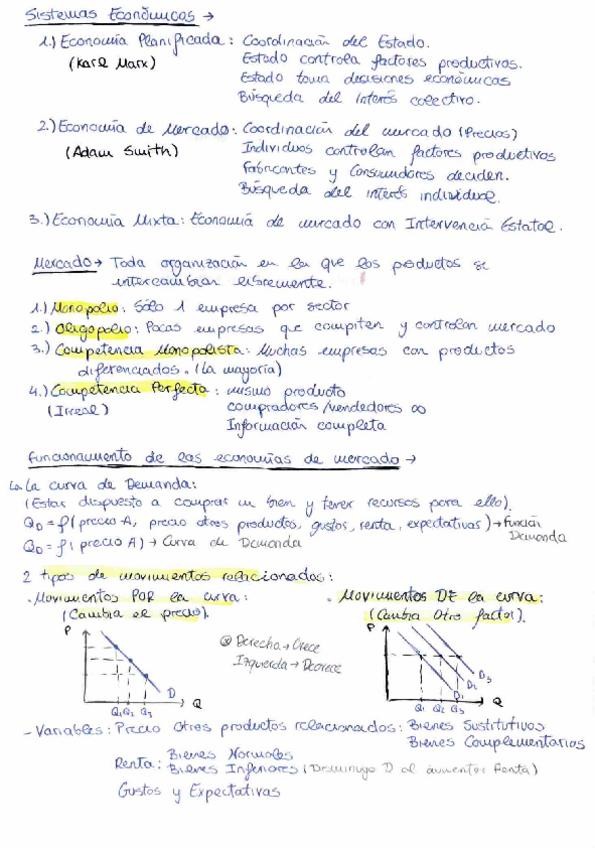 Sistemas Económicos →
1.) Economía Planificada: Coordinación del Estado.
(Karl Marx) Estado controla factores productivos.
Estado toma decisiones económicas
Búsqueda del interés colectivo.
2.) Economía de Mercado: Coordinación del mercado (Precios)
(Adam Smith) Individuos controlan factores productivos
Fabricantes y Consumidores deciden.
Búsqueda del interés individual.
3.) Economía Mixta: Economía de mercado con Intervención Estatal.
Mercado → Toda organización en la que los productos se
intercambian libremente.
1.) Monopolio: Sólo 1 empresa por sector
2.) Oligopolio: Pocas empresas que compiten y controlan mercado
3.) Competencia Monopolista: Muchas empresas con productos
diferenciados. (La mayoría)
4.) Competencia Perfecta: mismo producto
(Irreal) compradores/vendedores ∞
Información completa
Funcionamiento de las economías de mercado →
La curva de Demanda:
(Estar dispuesto a comprar un bien y tener recursos para ello).
QD = f( precio A, precio otros productos, gustos, renta, expectativas) → Función
Demanda
QD = f( precio A) → Curva de Demanda
2 tipos de movimientos relacionados:
· Movimientos POR la curva: · Movimientos DE la curva:
(Cambia el precio). (Cambia Otro factor).
P P
Derecha → Crece
Izquierda → Decrece
D Q D1 D2 D3 Q
Q1 Q2 Q3 Q1 Q2 Q3
- Variables: Precio Otros productos relacionados: Bienes Sustitutivos
Bienes Complementarios
Renta: Bienes Normales
Bienes Inferiores (Disminuye D al aumentar Renta)
Gustos y Expectativas